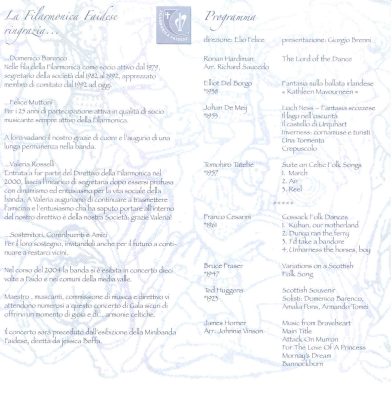 La Filarmonica Faidese
ringrazia...
...Domenico Barenco
Nelle fila della Filarmonica come socio attivo dal 1979,
segretario della società dal 1982 al 1992, apprezzato
membro di comitato dal 1992 ad oggi.
...Felice Muttoni
Per i 25 anni di partecipazione attiva in qualità di socio
musicante sempre attivo della Filarmonica.
A loro vadano il nostro grazie di cuore e l'augurio di una
lunga permanenza nella banda.
...Valeria Rosselli
Entrata a far parte del Direttivo della Filarmonica nel
2000, lascia l'incarico di segretaria dopo essersi profusa
con dinamismo ed entusiasmo per la vita sociale della
banda. A Valeria auguriamo di continuare a trasmettere
l'amicizia e l'entusiasmo che ha saputo portare all'interno
del nostro direttivo e della nostra Società: grazie Valeria!
...Sostenitori, Contribuenti e Amici
Per il loro sostegno, invitandoli anche per il futuro a conti-
nuare a restarci vicini.
Nel corso del 2004 la banda si è esibita in concerto dieci
volte a Faido e nei comuni della media valle.
Maestro, musicanti, commissione di musica e direttivo vi
attendono numerosi a questo concerto di Gala sicuri di
offrirvi un momento di gioia e di... armonie celtiche.
Il concerto sarà preceduto dall'esibizione della Minibanda
Faidese, diretta da Jessica Beffa.
Programma
direzione: Elio Felice presentazione: Giorgio Brenni
Ronan Hardiman The Lord of the Dance
Arr. Richard Saucedo
Elliot Del Borgo Fantasia sulla ballata irlandese
*1938 « Kathleen Mavourneen »
Johan De Meij Loch Ness – Fantasia scozzese
*1953 Il lago nell'oscurità
Il castello di Urquhart
Inverness: cornamuse e turisti
Una Tormenta
Crepuscolo
Tomohiro Tatebe Suite on Celtic Folk Songs
*1957 1. March
2. Air
3. Reel
*****
Franco Cesarini Cossack Folk Dances
*1961 1. Kuban, our motherland
2. Dunja ran the ferry
3. I'd take a bandore
4. Unharness the horses, boy
Bruce Fraser Variations on a Scottish
*1947 Folk Song
Ted Huggens Scottish Souvenir
*1928 Solisti: Domenico Barenco,
Amalia Fons, Armando Tonini
James Horner Music from Braveheart
Arr. Johnnie Vinson Main Title
Attack On Murron
For The Love Of A Princess
Mornay's Dream
Bannockburn